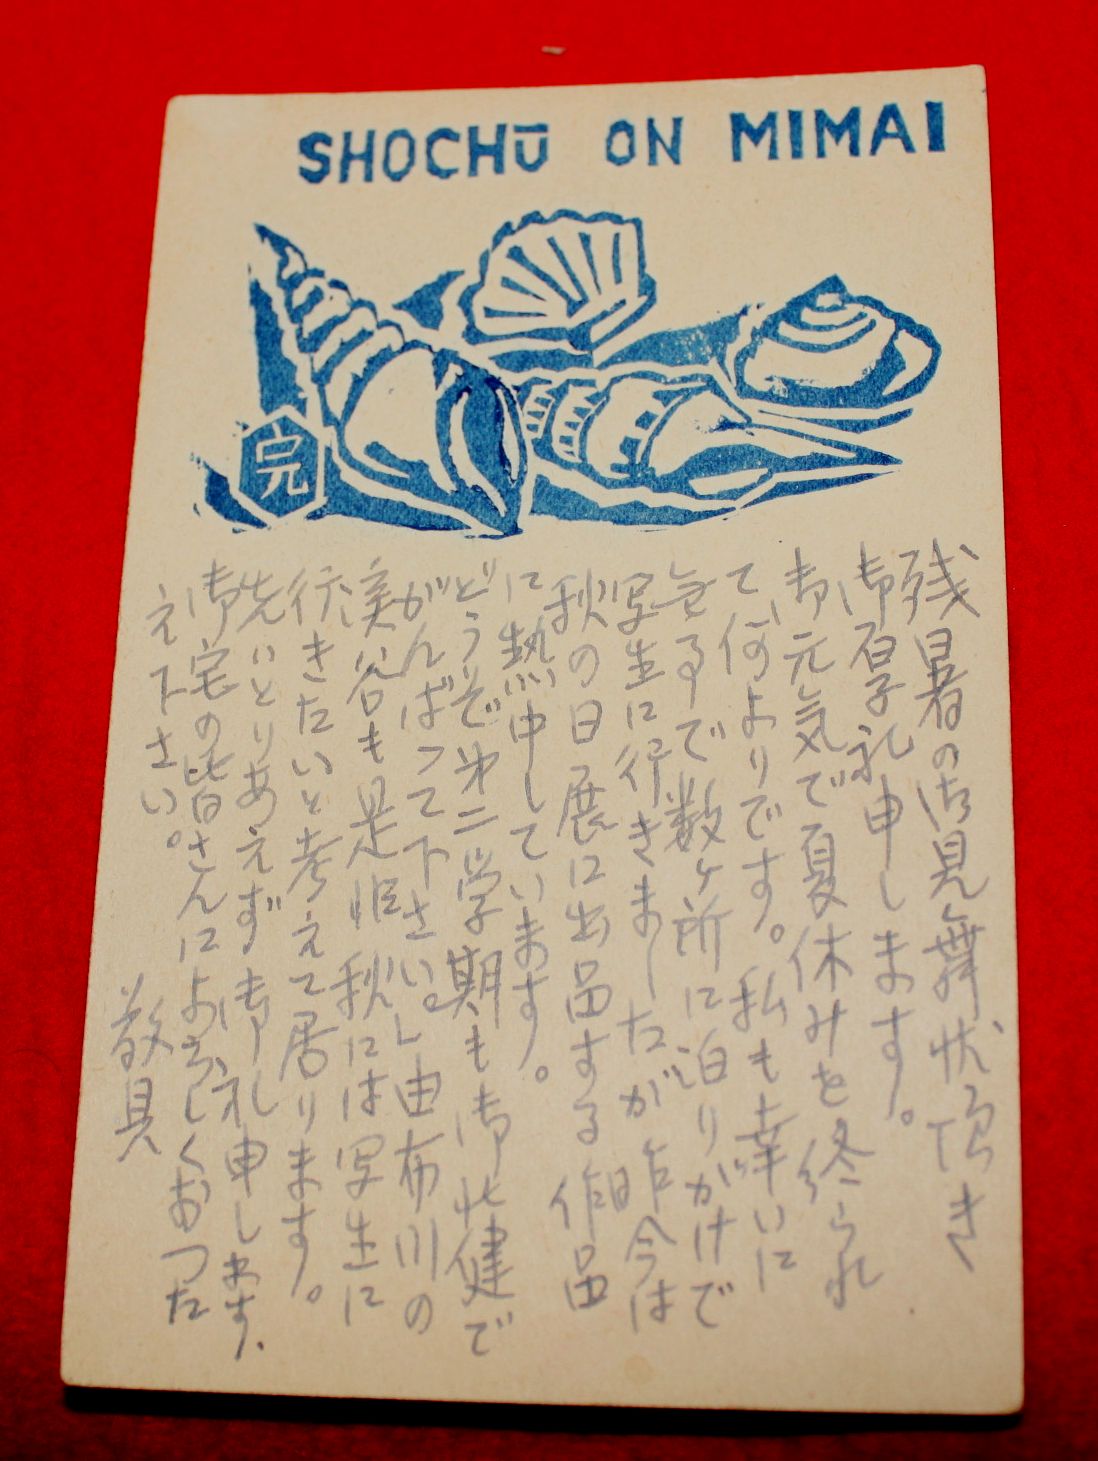 SHOCHŪ ON MIMAI
完
残暑の御見舞状頂き
御厚礼申します。
御元気で夏休みを終られ
て何よりです。私も幸いに
元気で数ヶ所に泊りがけで
写生に行きましたが昨今は
秋の日展に出品する作品
に熱中しています。
どうぞ第二学期も御壮健で
がんばって下さい。由布川の
渓谷も是非秋には写生に
行きたいと考えて居ります。
先いとりあえず御礼申します、
御宅の皆さんによろしくおつた
え下さい。
敬具